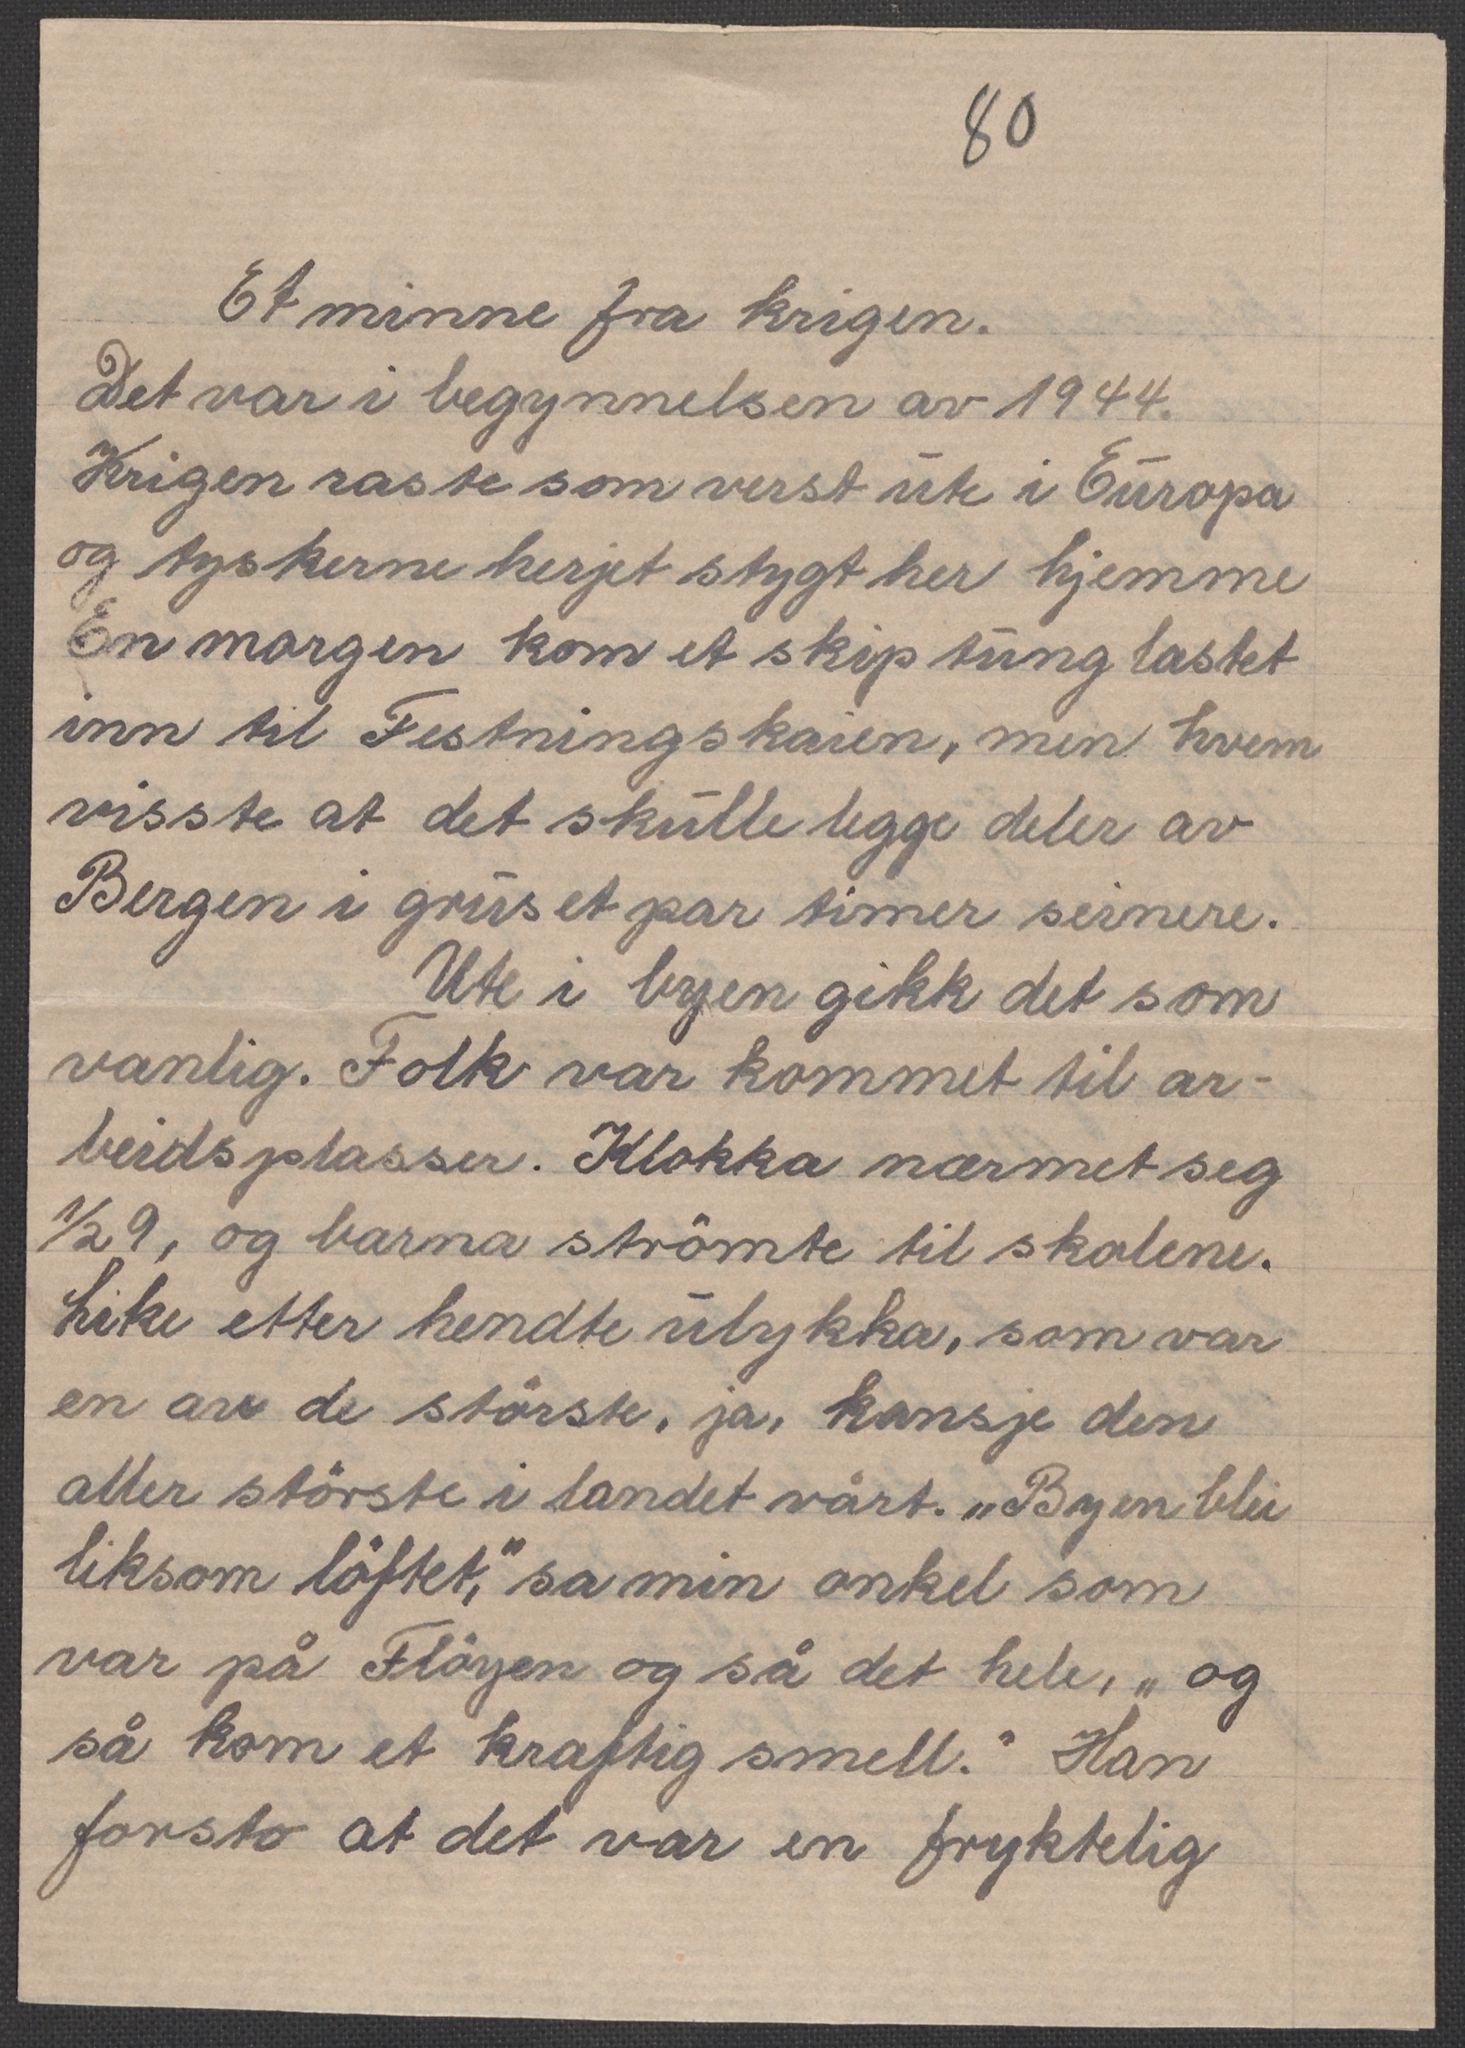 80
Et minne fra krigen.
Det var i begynnelsen av 1944.
Krigen raste som verst ute i Europa
og tyskerne herjet stygt her hjemme
En morgen kom et skip tung lastet
inn til Festningskaien, men hvem
visste at det skulle legge deler av
Bergen i grus et par timer seinere.
Ute i byen gikk det som
vanlig. Folk var kommet til ar-
beidsplasser. Klokka nærmet seg
1/2 9, og barna strömte til skolene.
Like etter hendte ulykka, som var
en av de störste, ja, kansje den
aller störste i landet vårt. „Byen blei
liksom löftet," sa min onkel som
var på Flöyen og så det hele, „og
så kom et kraftig smell." Han
forsto at det var en fryktelig